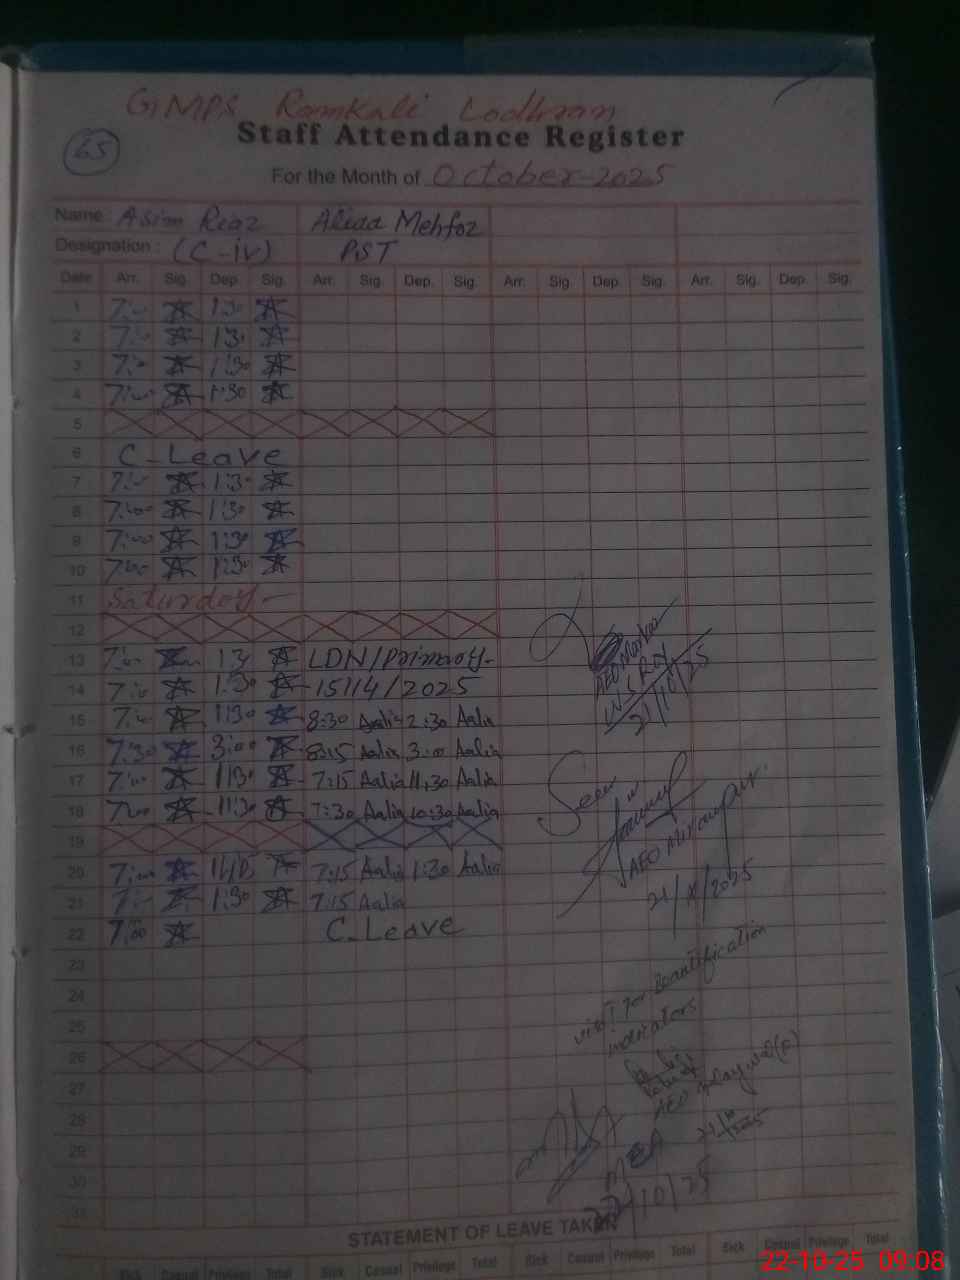 GMPS Ramkali Lodhran
65
Staff Attendance Register
For the Month of October-2025
Name: Asim Riaz
Designation: (C-iv) PST
Date Arr. Sig. Dep. Sig. Arr. Sig. Dep. Sig. Arr. Sig. Dep. Sig. Arr. Sig. Dep. Sig.
1 7:00 1:30
2 7:00 1:30
3 7:00 1:30
4 7:00 1:30
5
6 C-Leave
7 7:00 1:30
8 7:00 1:30
9 7:00 1:30
10 7:00 1:30
11 Saturday-
12
13 7:00 1:30 LDN/Primary-
14 7:00 1:30 15114/2025
15 7:00 1:30 8:30 Aalia 2:30 Aalia
16 7:30 3:00 8:15 Aalia 3:00 Aalia
17 7:00 11:30 7:15 Aalia 11:30 Aalia
18 7:00 11:30 7:30 Aalia 10:30 Aalia
19
20 7:00 7:15 Aalia 1:30 Aalia
21 1:30 7:15 Aalia
22 7:00 C-Leave
23
24
25
26
27
28
29
30
31
21/10/25
Seen
AEO Miranpur
21/X/2025
visit for beautification
indicators
AEO
MEA
22/10/25
STATEMENT OF LEAVE TAKEN
Sick Casual Privilege Total Sick Casual Privilege Total Sick Casual Privilege Total Sick Casual Privilege Total
22-10-25 09:08